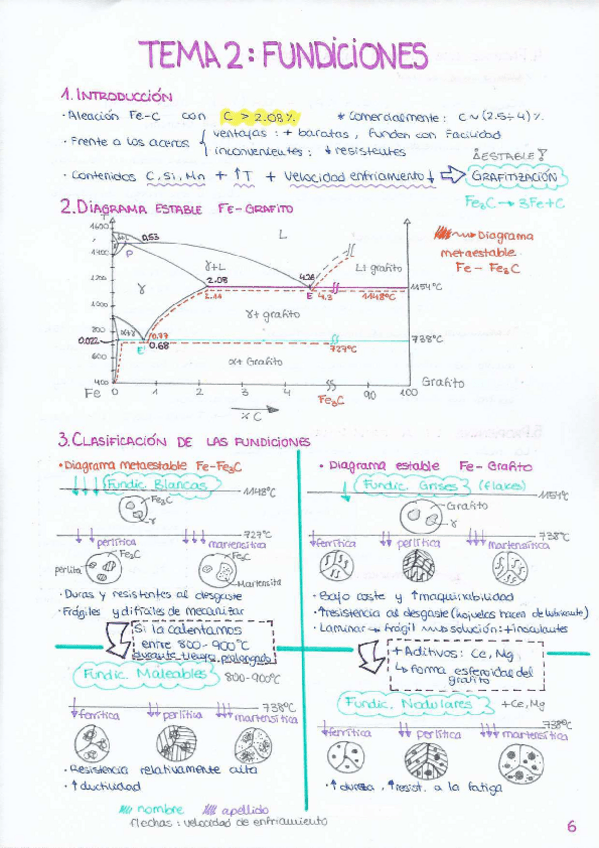 TEMA 2: FUNDICIONES
1. INTRODUCCIÓN
· Aleación Fe-C con C > 2.08% * Comercialmente: C ~ (2.5÷4)%
· Frente a los aceros { ventajas: + baratas, funden con facilidad
inconvenientes: ↓ resistentes
· Contenidos C, Si, Mn + ↑T + Velocidad enfriamiento ↓ ⇒ GRAFITIZACIÓN
¡¡ESTABLE!!
Fe₃C → 3Fe+C
2. DIAGRAMA ESTABLE FE-GRAFITO
Diagrama
metaestable
Fe - Fe₃C
T
1600
1400
1200
1000
800
600
400
0.53
L
P
γ+L
4.26
L+ grafito
γ
2.08
2.11
E
4.3
1148°C
1154°C
γ + grafito
α+γ
0.022
0.77
0.68
E'
727°C
738°C
α + Grafito
Fe 0 1 2 3 4 90 100
Fe₃C
Grafito
% C
3. CLASIFICACIÓN DE LAS FUNDICIONES
· Diagrama metaestable Fe-Fe₃C
Fundic. Blancas
1148°C
Fe₃C
γ
727°C
perlítica
martensítica
Fe₃C
perlita
Martensita
· Duras y resistentes al desgaste
· Frágiles y difíciles de mecanizar
Si la calentamos
entre 800-900°C
durante tiempo prolongado
Fundic. Maleables 800-900°C
738°C
ferrítica perlítica martensítica
· Resistencia relativamente alta
· ↑ ductilidad
· Diagrama estable Fe-Grafito
Fundic. Grises (flakes)
1154°C
Grafito
γ
738°C
ferrítica perlítica martensítica
· Bajo coste y ↑ maquinibilidad
· ↑ resistencia al desgaste (hojuelas hacen de lubricante)
· Laminar → frágil solución: + inoculantes
+ Aditivos: Ce, Mg
↳ forma esferoidal del
grafito
Fundic. Nodulares + Ce, Mg
738°C
ferrítica perlítica martensítica
· ↑ dureza, ↑ resist. a la fatiga
nombre apellido
flechas: velocidad de enfriamiento
6